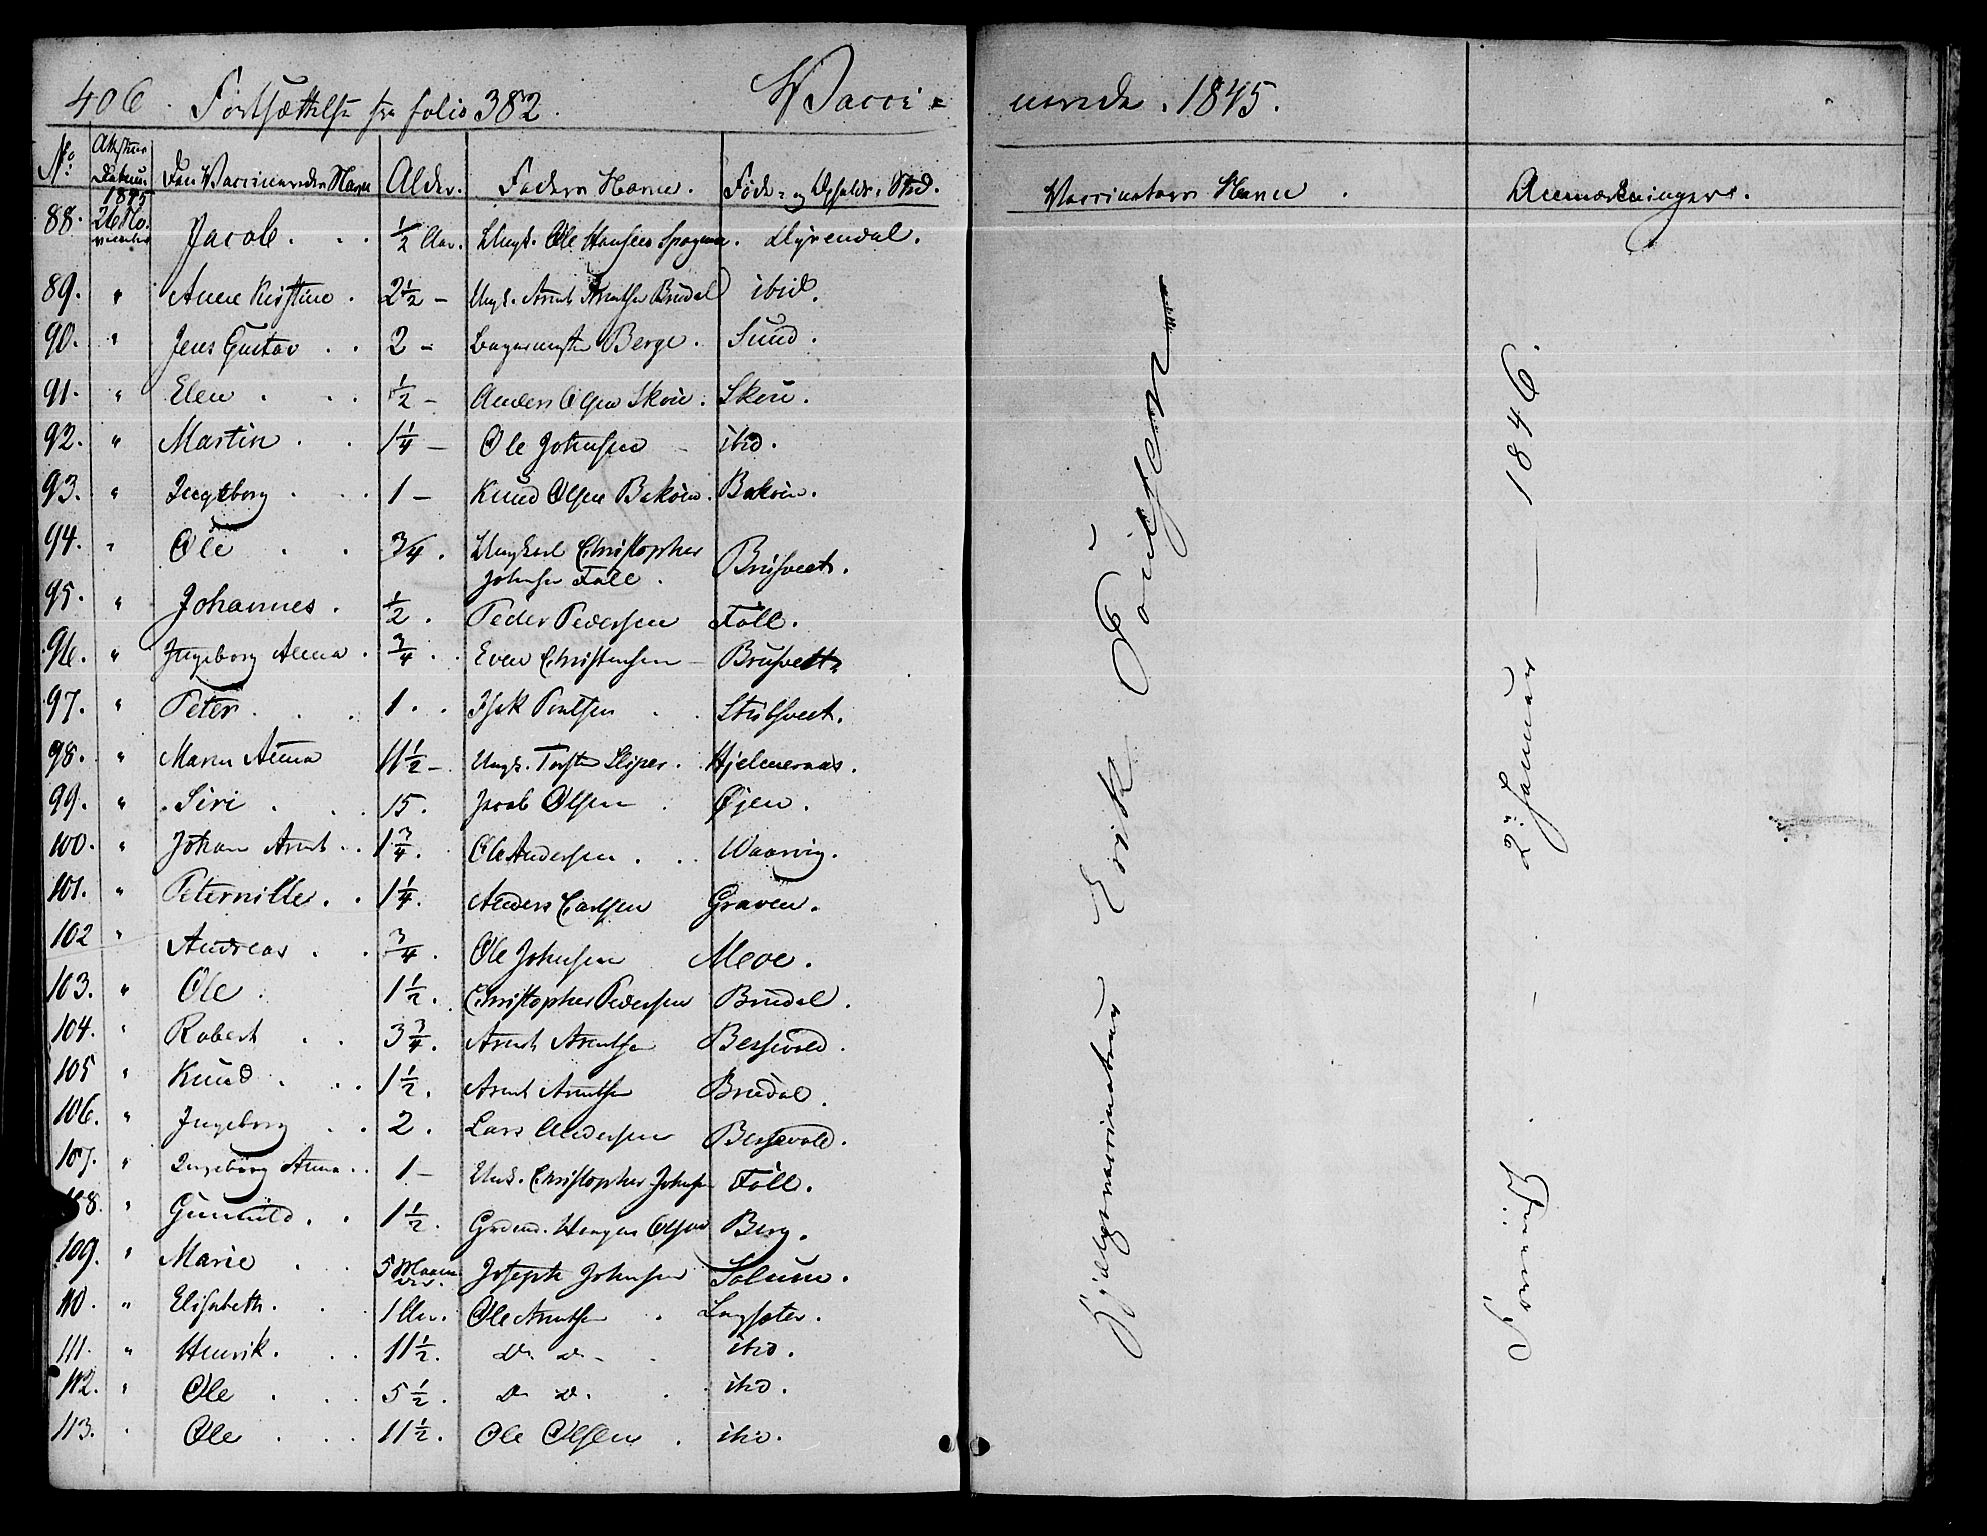 406. Fortsættelse fra folio 382. Vacci-
nerede. 1845.
No. Attestens Datum. Den Vaccineredes Navn Alder. Faderns Navn. Føde- og Opholds-Sted.
Vaccinateurs Navn. Anmærkninger.
1845
88. 26 November Jacob. ½ Aar. Ungk. Ole Hansen Dyrendal.
89. " Anne Kirstine. 2½ - Ungk. Arnt Arntsen Brudal ibid.
90. " Jens Gustav. 2 - Berge. Sund.
91. " Elen. ½ - Anders Olsen Skoin. Skoin.
92. " Martin. 1¼ - Ole Johnsen ibid.
93. " Ingeborg. 1 - Knud Olsen Bakøin. Bakøin.
94. " Ole. ¾. Ungkarl Christopher
Johnsen Foll. Brusvedt.
95. " Johannes. ½. Peder Pedersen Foll.
96. " Ingeborg Anna. ¾. Even Christensen - Brusvedt
97. " Peter. 1. Isak Poulsen. Stubsvedt.
98. " Maren Anna 11½ - Ungk. Torsten Sliper. Hjelmeraas.
99. " Siri. 15. Jacob Olsen. Øjen.
100. " Johan Arnt. 1¾. Ole Andersen. Waarvig.
101. " Peternille. 1¼. Anders Carlsen Graven.
102 " Andreas. ¾. Ole Johnsen Meoe.
103. " Ole. 1½. Christopher Pedersen Brudal.
104. " Robert. 3¾. Arnt Arntsen Bessevold.
105 " Knud. 1½. Arnt Arntsen Brudal.
106. " Ingeborg. 2. Lars Andersen Bessevold.
107. " Ingeborg Anna. 1 - Ungk. Christopher Johnsen Foll.
108. " Gunnild. 1½. Grdmd. Haagen Olsen Berg.
109. " Marie. 5 Maaneder. Joseph Johnsen Solum.
110. " Elisabeth. 1 Aar. Ole Arntsen. Langsæter.
111. " Henrik. 11½. D. D. ibid.
112. " Ole. 5½. D. D. ibid.
113. " Ole. 11½. Ole Olsen. ibid.
Hjælpevaccinateur Erik Foinsen
2. Januar - 1846.